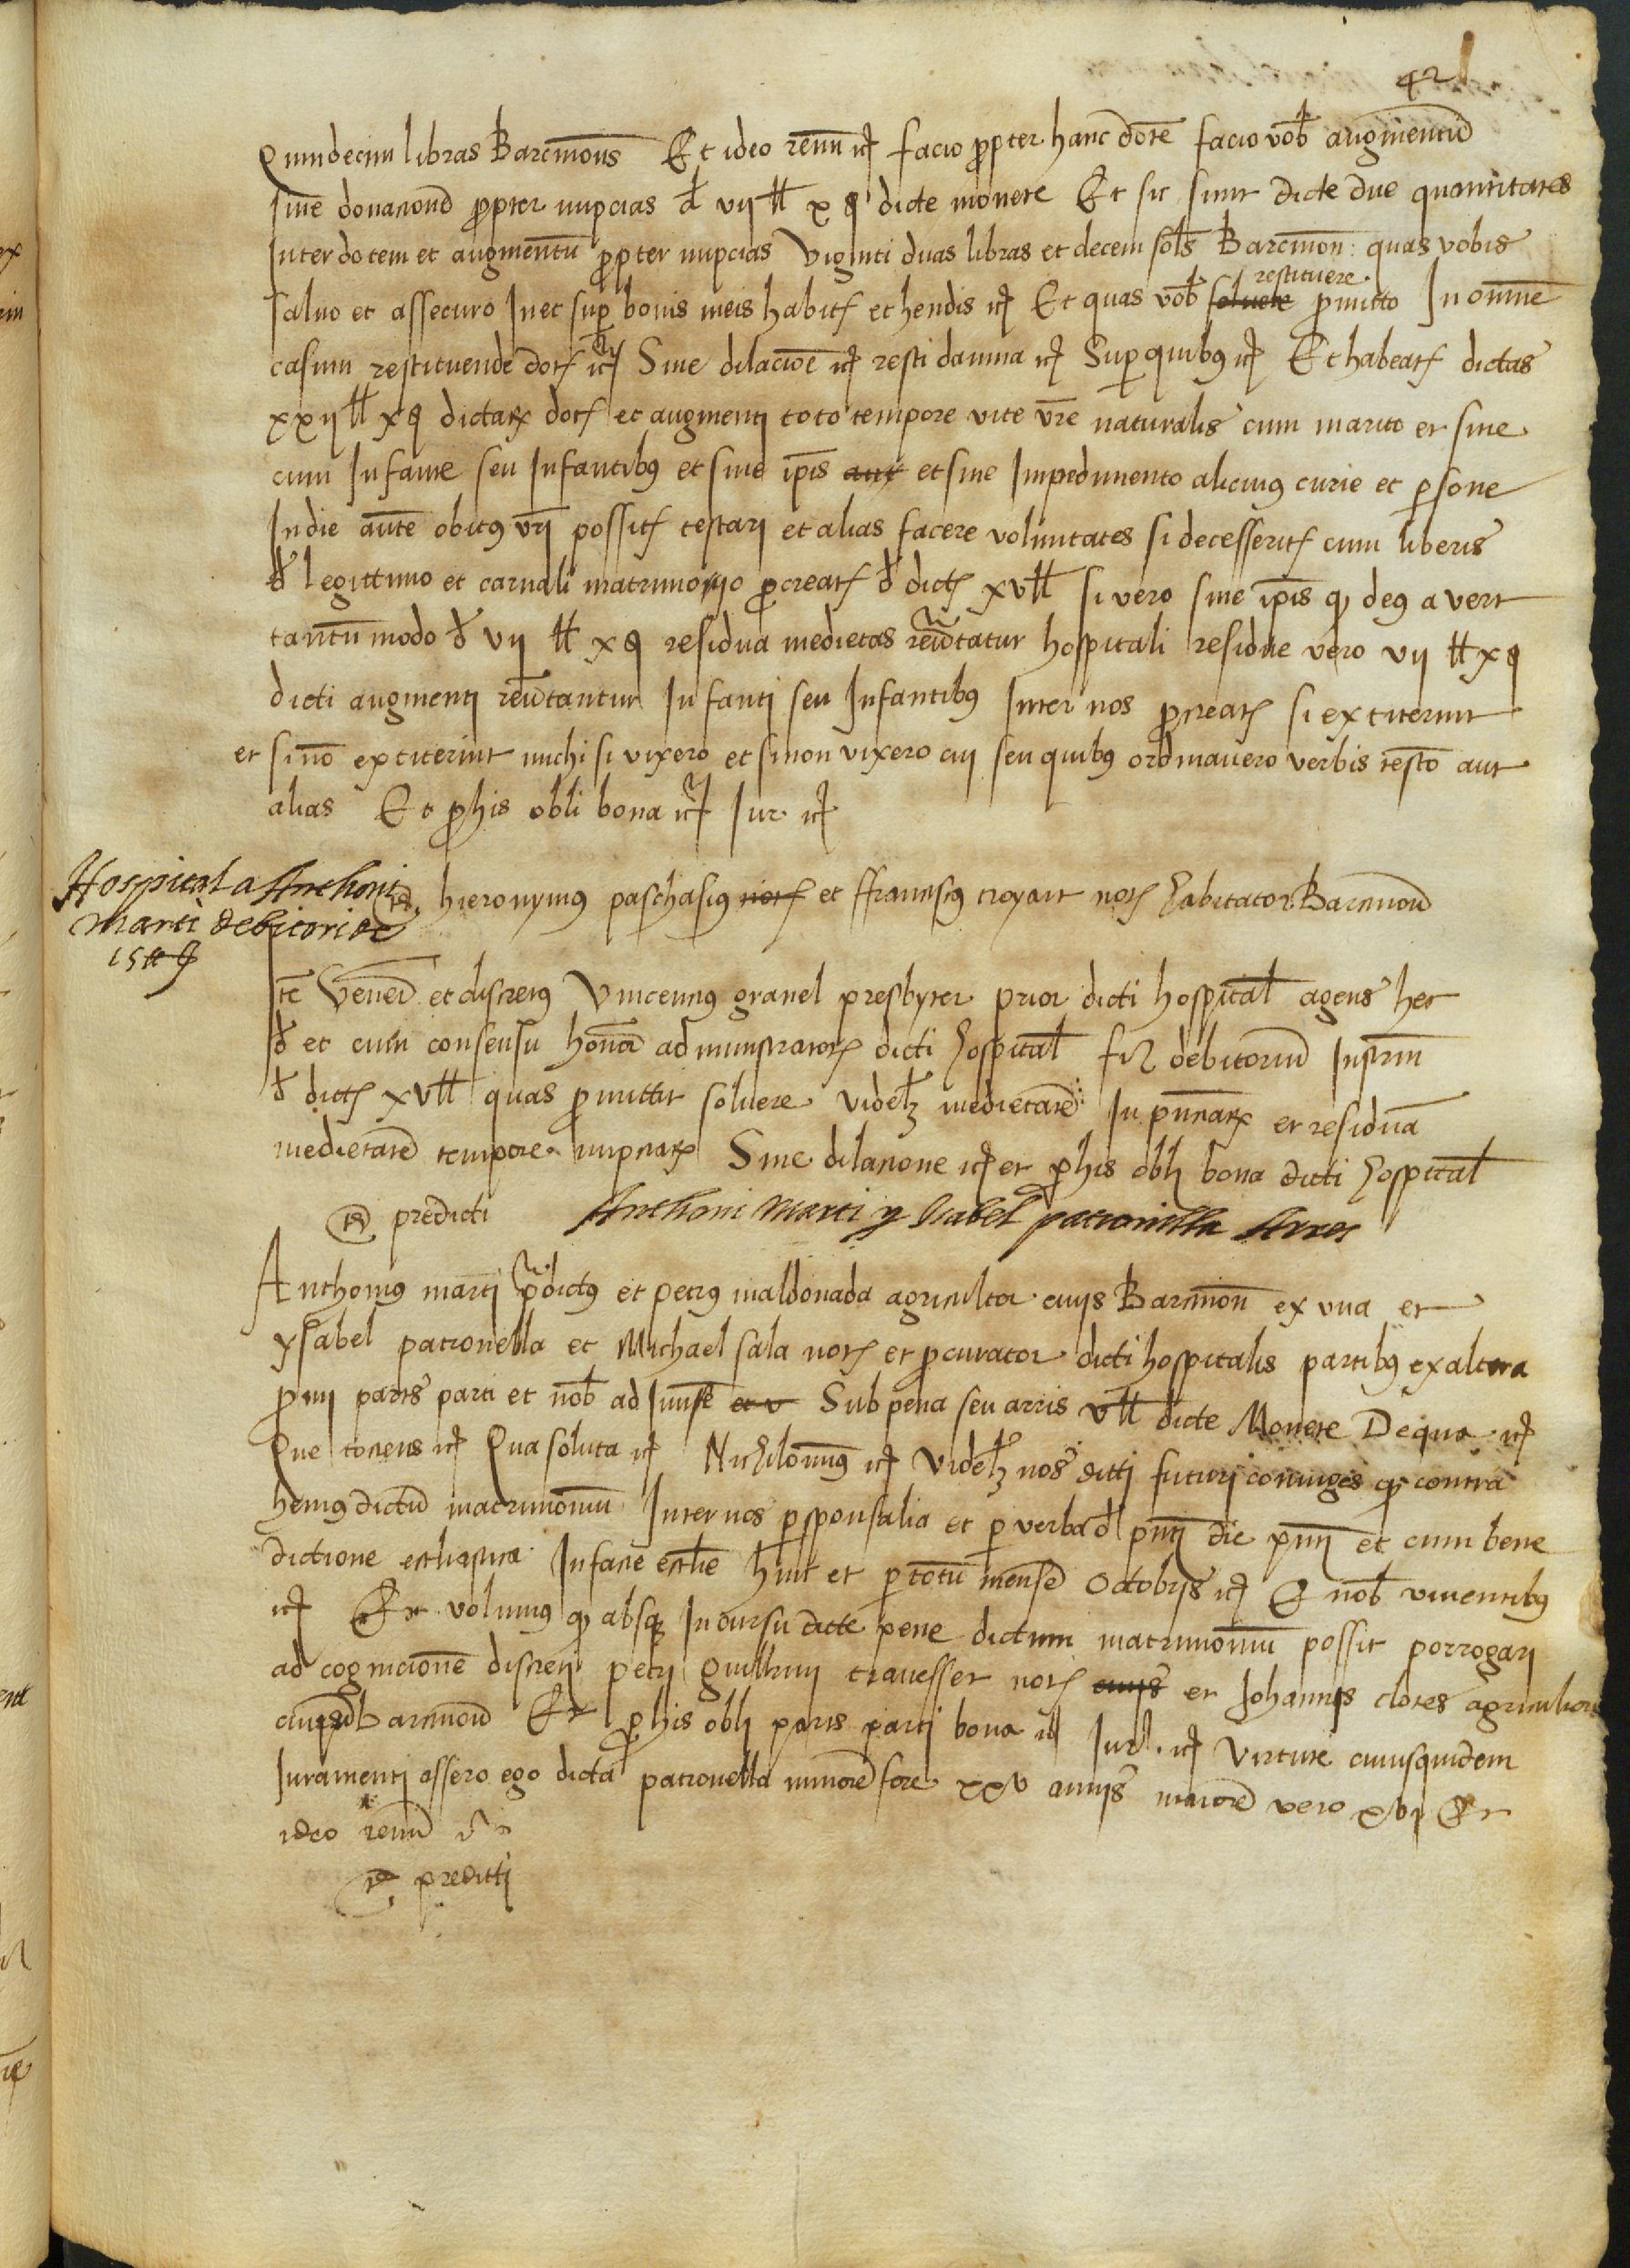 42
Quindecim libras Barcinonens Et ideo renun etc facio propter hanc dote facio vob augmentum
sive donacionem propter nupcias de vii ll x s dicte monete Et sic sunt dicte due quantitates
Inter dotem et augmentum propter nupcias Viginti duas libras et decem sols Barcinon quas vobis
salvo et assecuro In et super bonis meis habitis et hendis etc Et quas vob solvere restituere promitto In omne
casum restituende dotis etc Sine dilacione etc resti damna etc Super quibus etc Et habeatis dictas
xxii ll x s dictarum dotis et augmenti toto tempore vite vre naturalis cum marito et sine
cum Infante seu Infantibus et sine ipis et sine Impedimento alicuius curie et persone
In die aute obitus vri possitis testari et alias facere voluntates si decesseritis cum liberis
de legittimo et carnali matrimonio procreatis de dictis xv ll si vero sine ipis quod deus avert
tantum modo de vii ll x s residua medietas revertatur hospitali residue vero vii ll x s
dicti augmenti revertantur Infanti seu Infantibus Inter nos procreatis si extiterint
et si no extiterint michi si vixero et si non vixero cui seu quibus ordinavero verbis testo aut
alias Et pro his obli bona etc Iur etc
Hospital a Anthoni
Marti debitori de
15 ll
Ts hieronymus paschasius nots et ffranciscus troyart nots habitator Barcinon
Ite Vener et discretus Vincencius granel presbyter prior dicti hospital agens hec
de et cum consensu honor administratoris dicti hospital fir debitorium Instrm
de dictis xv ll quas promittit solvere videlz medietatem In puncarum et residua
medietatem tempore nupciarum Sine dilacione etc et pro his obli bona dicti hospital
Ts predicti
Anthoni Marti y Isabel patronilla Arres
Anthonius marti predictus et petrus maldonada agricultor civis Barcinon ex una et
ysabel patronella et Michael sala nots et procurator dicti hospitalis partibus ex altera
promi partis parti et nob ad Invise et v Sub pena seu arris v ll dicte Monete De qua etc
Que tociens etc Qua soluta etc Nichilominus etc Videlz nos dicti futuri coniuges quod contra
hemus dictum matrimonium Inter nos per sponsalia et per verba de pnti die pnti et cum bene
dictione ecclesiastica In facie ecclie hint et per totum mensem Octobris etc E nob viventibus
etc Et volumus quod absque Incursu dicte pene dictum matrimonium possit porrogari
ad cognicionem discreti petri guillmi travesser nots civis et Johannis clotes agricultoris
civis Barcinon Et pro his obli partis parti bona etc Iur etc Virtute cuiusquidem
Iuramenti assero ego dicta patronella minorem fore xxv annis maiorem vero xvi Et
ideo renun etc
Ts predicti